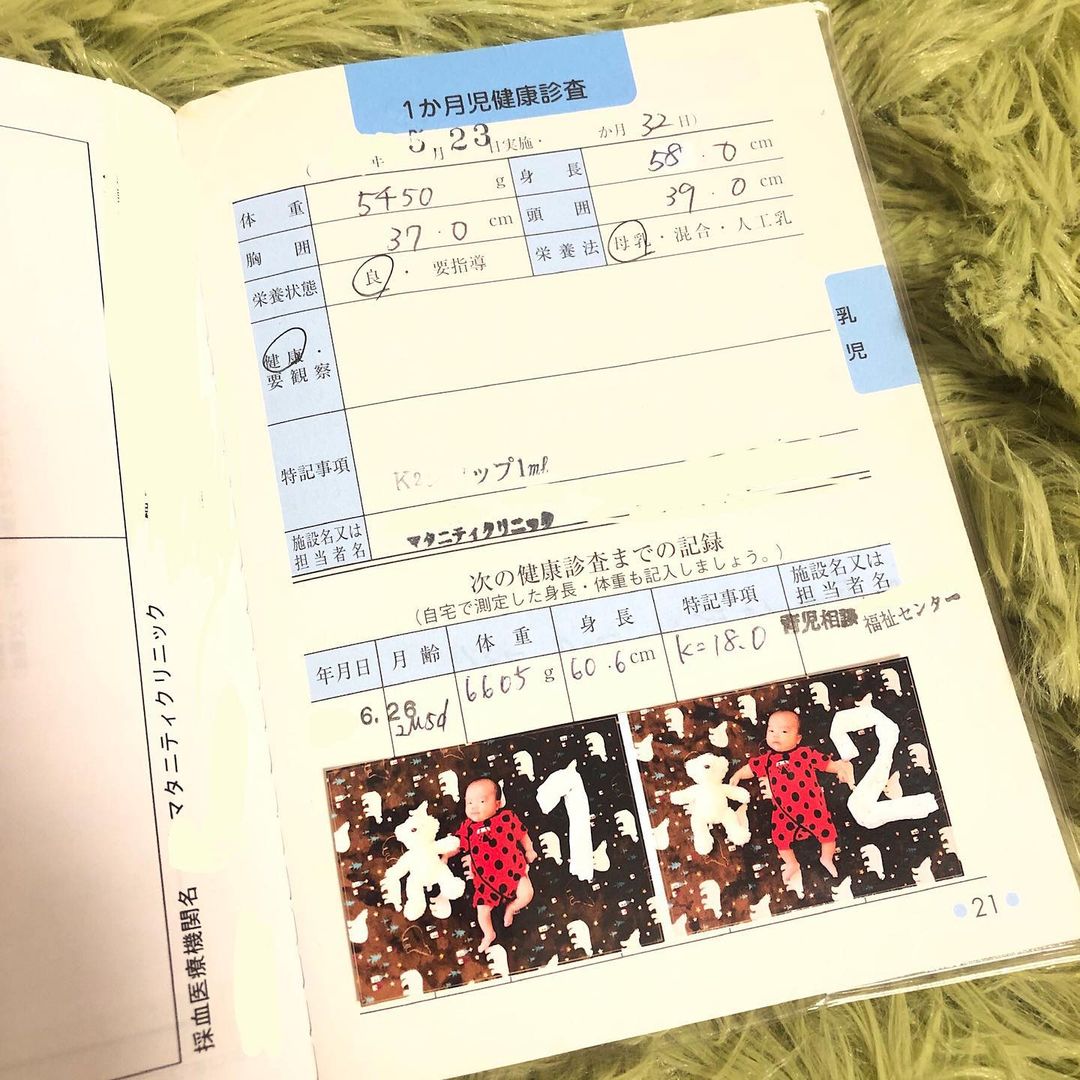 1か月児健康診査
( 年 5月23日実施・ か月 32日)
体重 5450 g 身長 58.0 cm
胸囲 37.0 cm 頭囲 39.0 cm
栄養状態 良・要指導 栄養法 母乳・混合・人工乳
健康・
要観察
特記事項 K2 ップ1ml
施設名又は
担当者名 マタニティクリニック
次の健康診査までの記録
(自宅で測定した身長・体重も記入しましょう。)
年月日 月齢 体重 身長 特記事項 施設名又は担当者名
6.26 2m5d 6605 g 60.6cm K=18.0 育児相談 福祉センター
1
2
21
乳児
採血医療機関名 マタニティクリニック